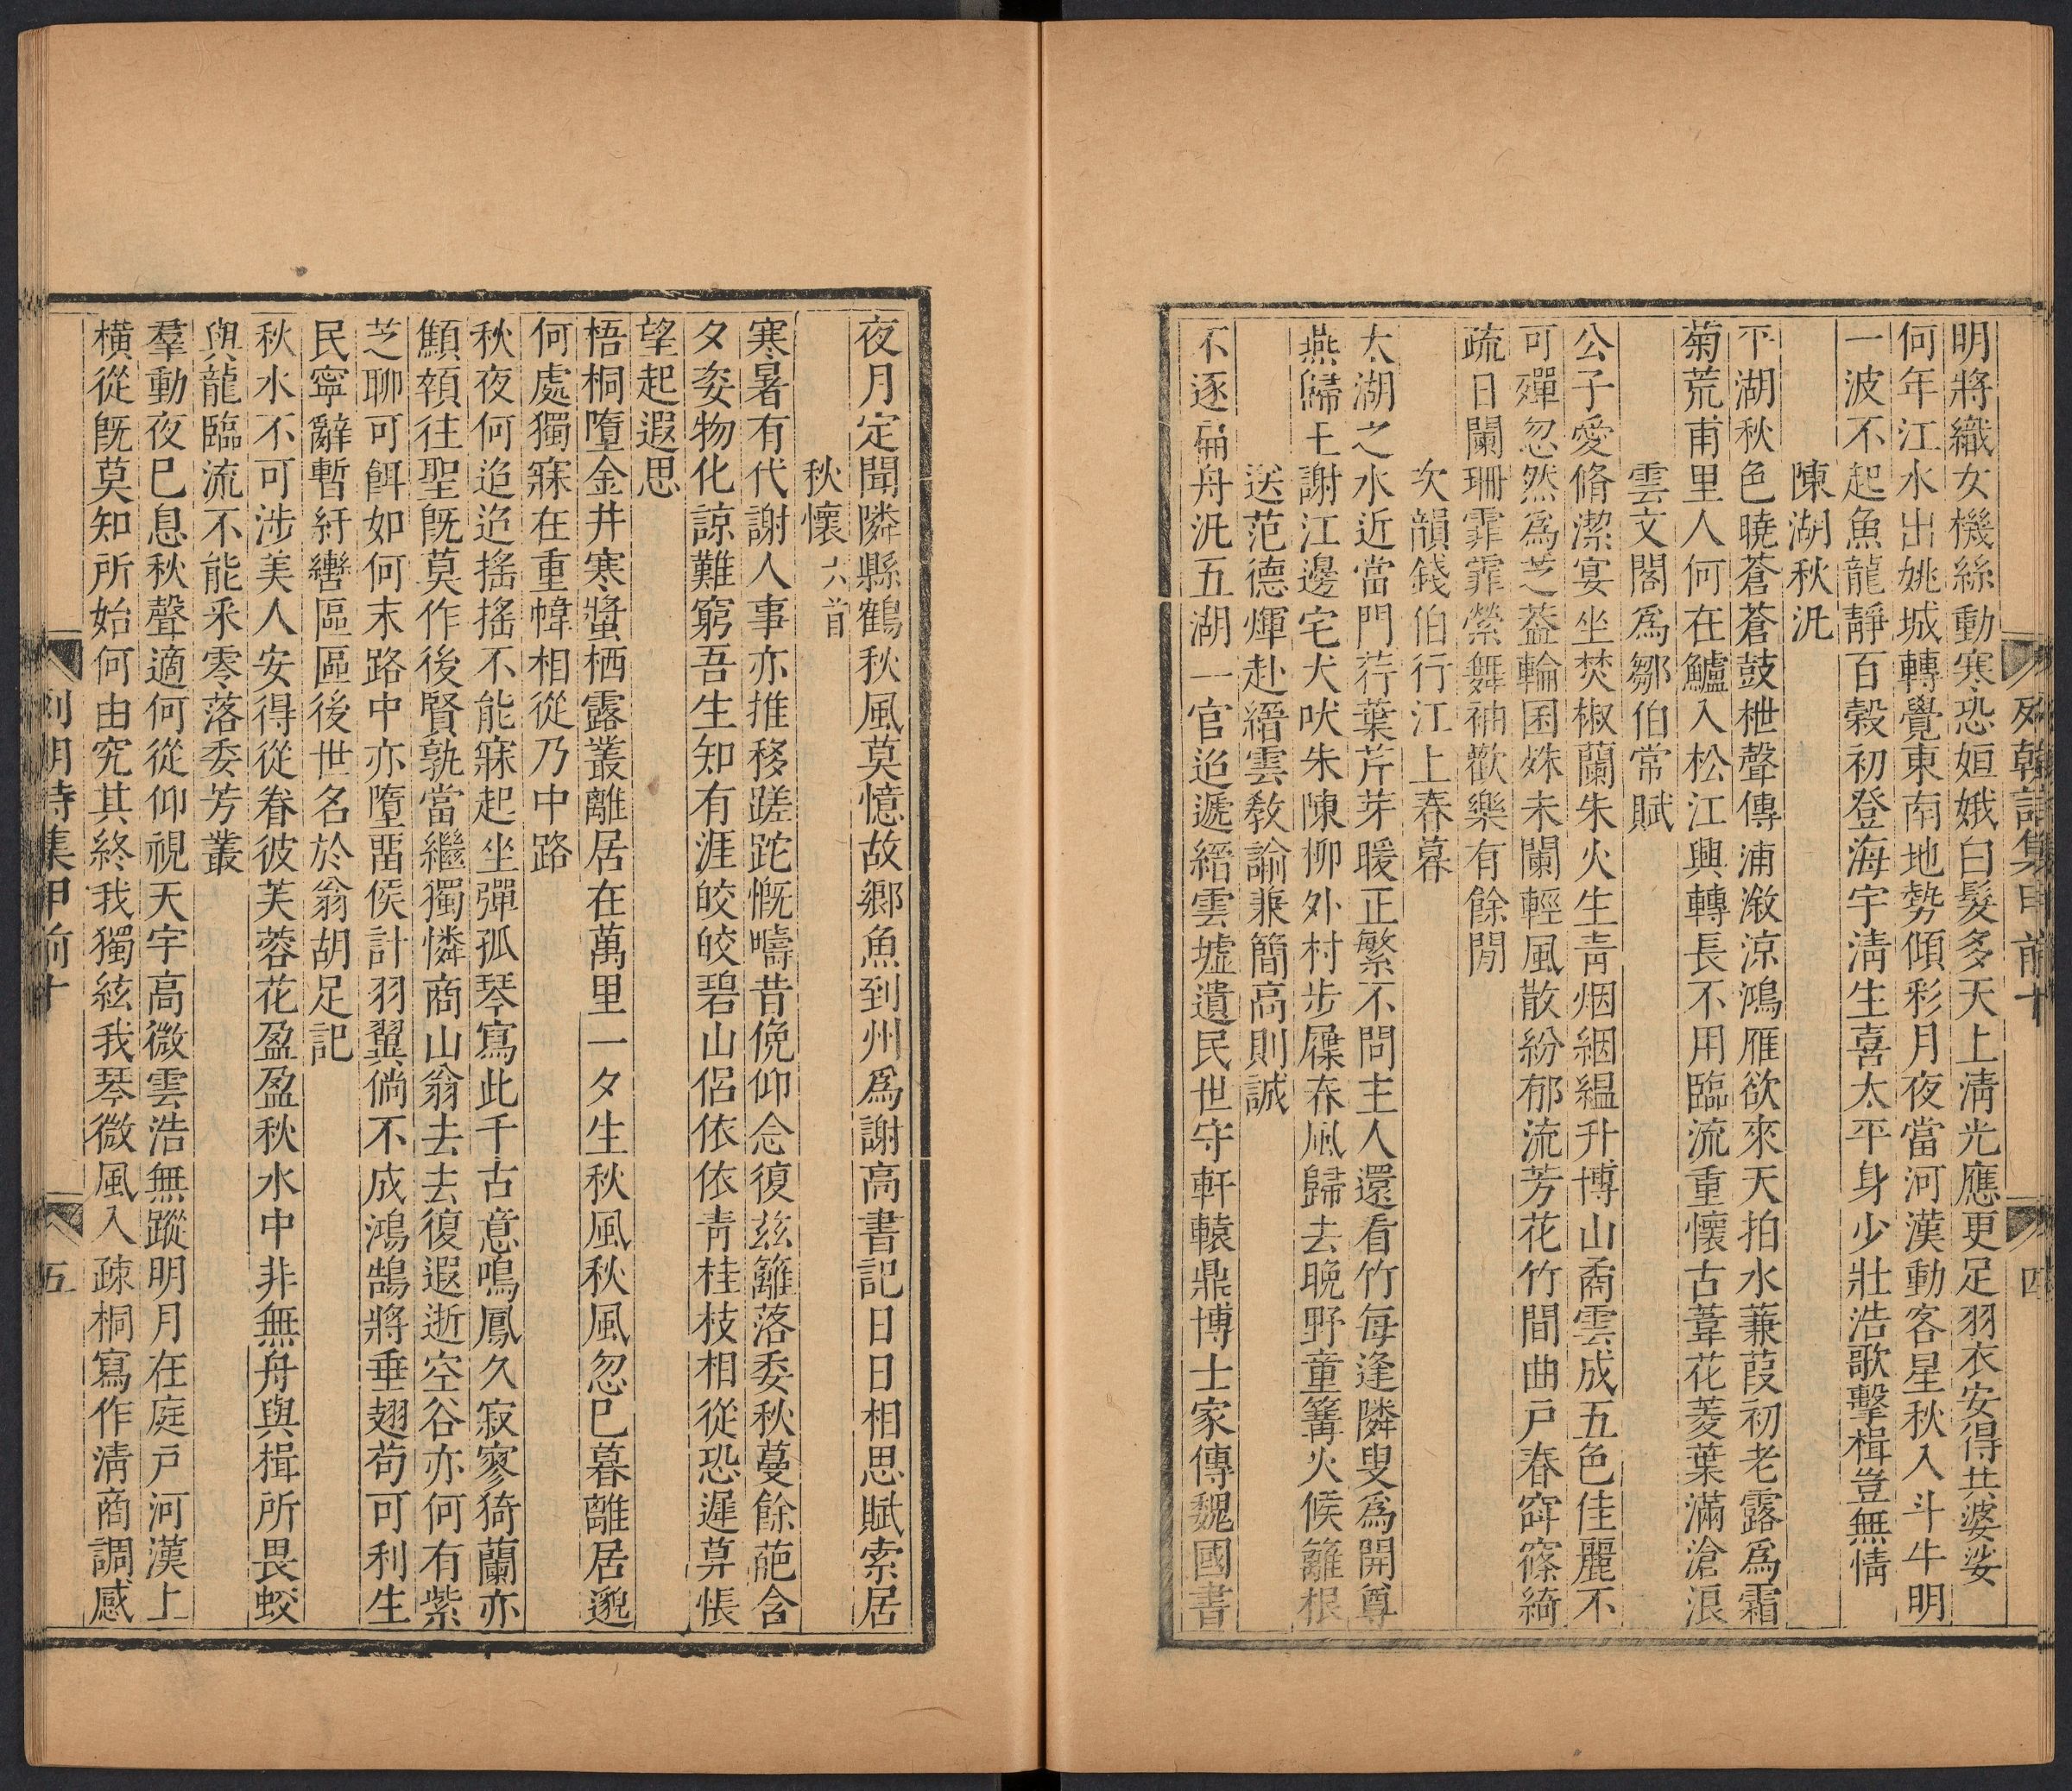 明將織女機絲動寒恐姮娥白髮多天上淸光應更足羽衣安得共婆娑
何年江水出姚城轉覺東南地勢傾彩月夜當河漢動客星秋入斗牛明
一波不起魚龍靜百穀初登海宇淸生喜太平身少壯浩歌擊楫豈無情
陳湖秋汎
平湖秋色曉蒼蒼鼓枻聲傳浦漵涼鴻雁欲來天拍水蒹葭初老露爲霜
菊荒甫里人何在鱸入松江興轉長不用臨流重懷古葦花菱葉滿滄浪
雲文閣爲鄒伯常賦
公子愛脩潔宴坐焚椒蘭朱火生靑烟絪縕升博山矞雲成五色佳麗不
可殫忽然爲芝蓋輪囷姝未闌輕風散紛郁流芳花竹間曲戶春窣窱綺
疏日闌珊霏霏縈舞袖歡樂有餘閒
次韻錢伯行江上春暮
太湖之水近當門荇葉芹芽暖正繁不問主人還看竹每逢隣叟爲開尊
燕歸王謝江邊宅犬吠朱陳柳外村步屧春風歸去晩野童篝火候籬根
送范德煇赴縉雲敎諭兼簡高則誠
不逐扁舟汎五湖一官迢遞縉雲墟遺民世守軒轅鼎博士家傳魏國書
列朝詩集甲前十
四
夜月定聞隣縣鶴秋風莫憶故鄕魚到州爲謝高書記日日相思賦索居
秋懷六首
寒暑有代謝人事亦推移蹉跎慨疇昔俛仰念復玆籬落委秋蔓餘葩含
夕姿物化諒難窮吾生知有涯皎皎碧山侶依依靑桂枝相從恐遲莫悵
望起遐思
梧桐墮金井寒螿栖露叢離居在萬里一夕生秋風秋風忽已暮離居邈
何處獨寐在重幃相從乃中路
秋夜何迢迢搖搖不能寐起坐彈孤琴寫此千古意鳴鳳久寂寥猗蘭亦
顦顇往聖旣莫作後賢孰當繼獨憐商山翁去去復遐逝空谷亦何有紫
芝聊可餌如何末路中亦墮畱侯計羽翼倘不成鴻鵠將垂翅苟可利生
民寧辭暫紆轡區區後世名於翁胡足記
秋水不可涉美人安得從眷彼芙蓉花盈盈秋水中非無舟與揖所畏蛟
與龍臨流不能采零落委芳叢
羣動夜已息秋聲適何從仰視天宇高微雲浩無蹤明月在庭戶河漢上
橫從旣莫知所始何由究其終我獨絃我琴微風入疎桐寫作淸商調感
列朝詩集甲前十
五